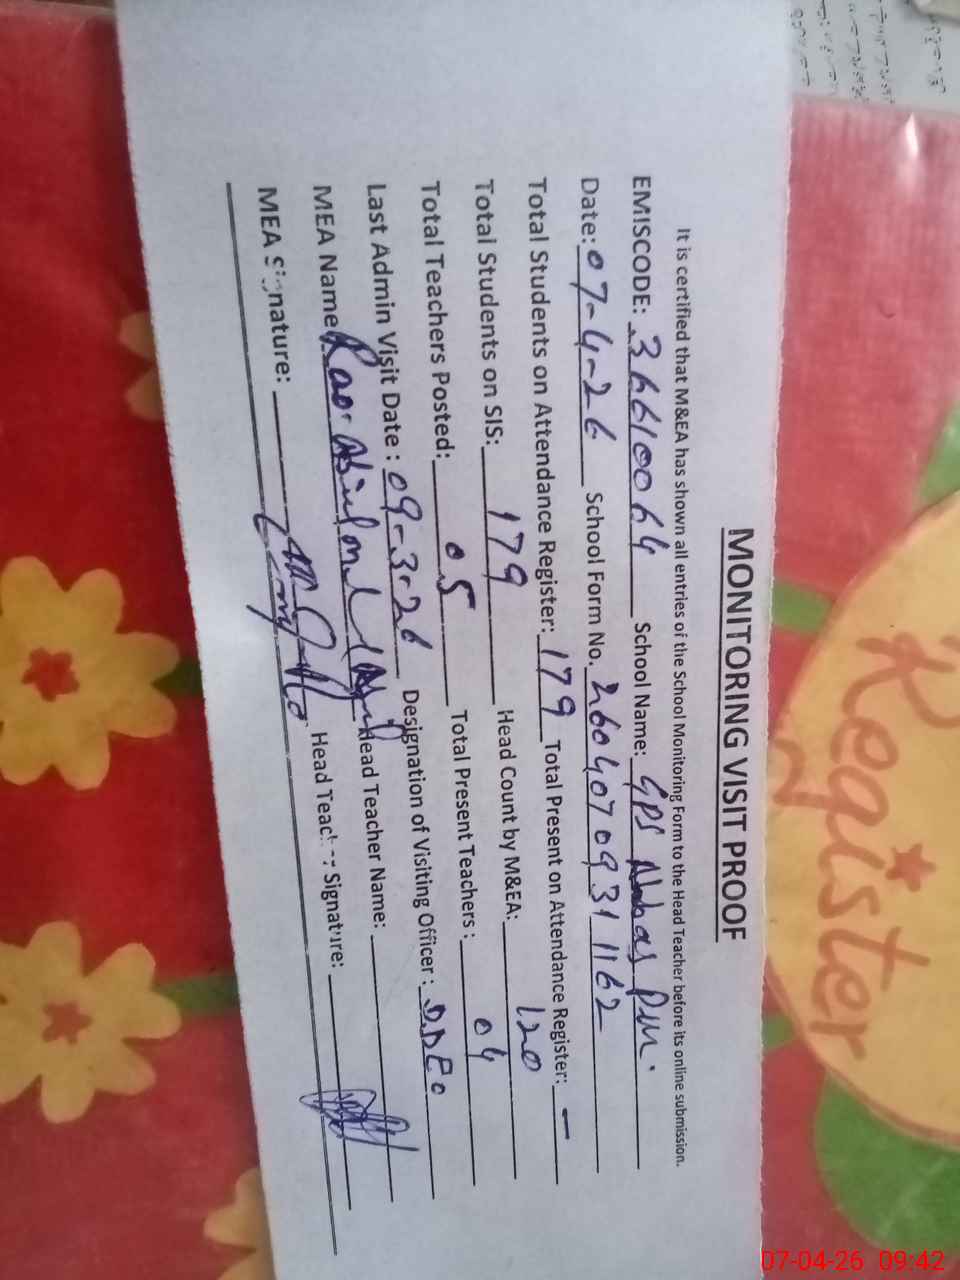 MONITORING VISIT PROOF
It is certified that M&EA has shown all entries of the School Monitoring Form to the Head Teacher before its online submission.
EMISCODE: 36610064 School Name: GPS pur.
Date: 07-4-26 School Form No. 2604070931162
Total Students on Attendance Register: 179 Total Present on Attendance Register: -
Total Students on SIS: 179 Head Count by M&EA: 120
Total Teachers Posted: 05 Total Present Teachers: 04
Last Admin Visit Date: 09-3-26 Designation of Visiting Officer: D.D.E.O
MEA Name: Rao Head Teacher Name:
MEA Signature: Head Teacher Signature:
Register
07-04-26 09:42